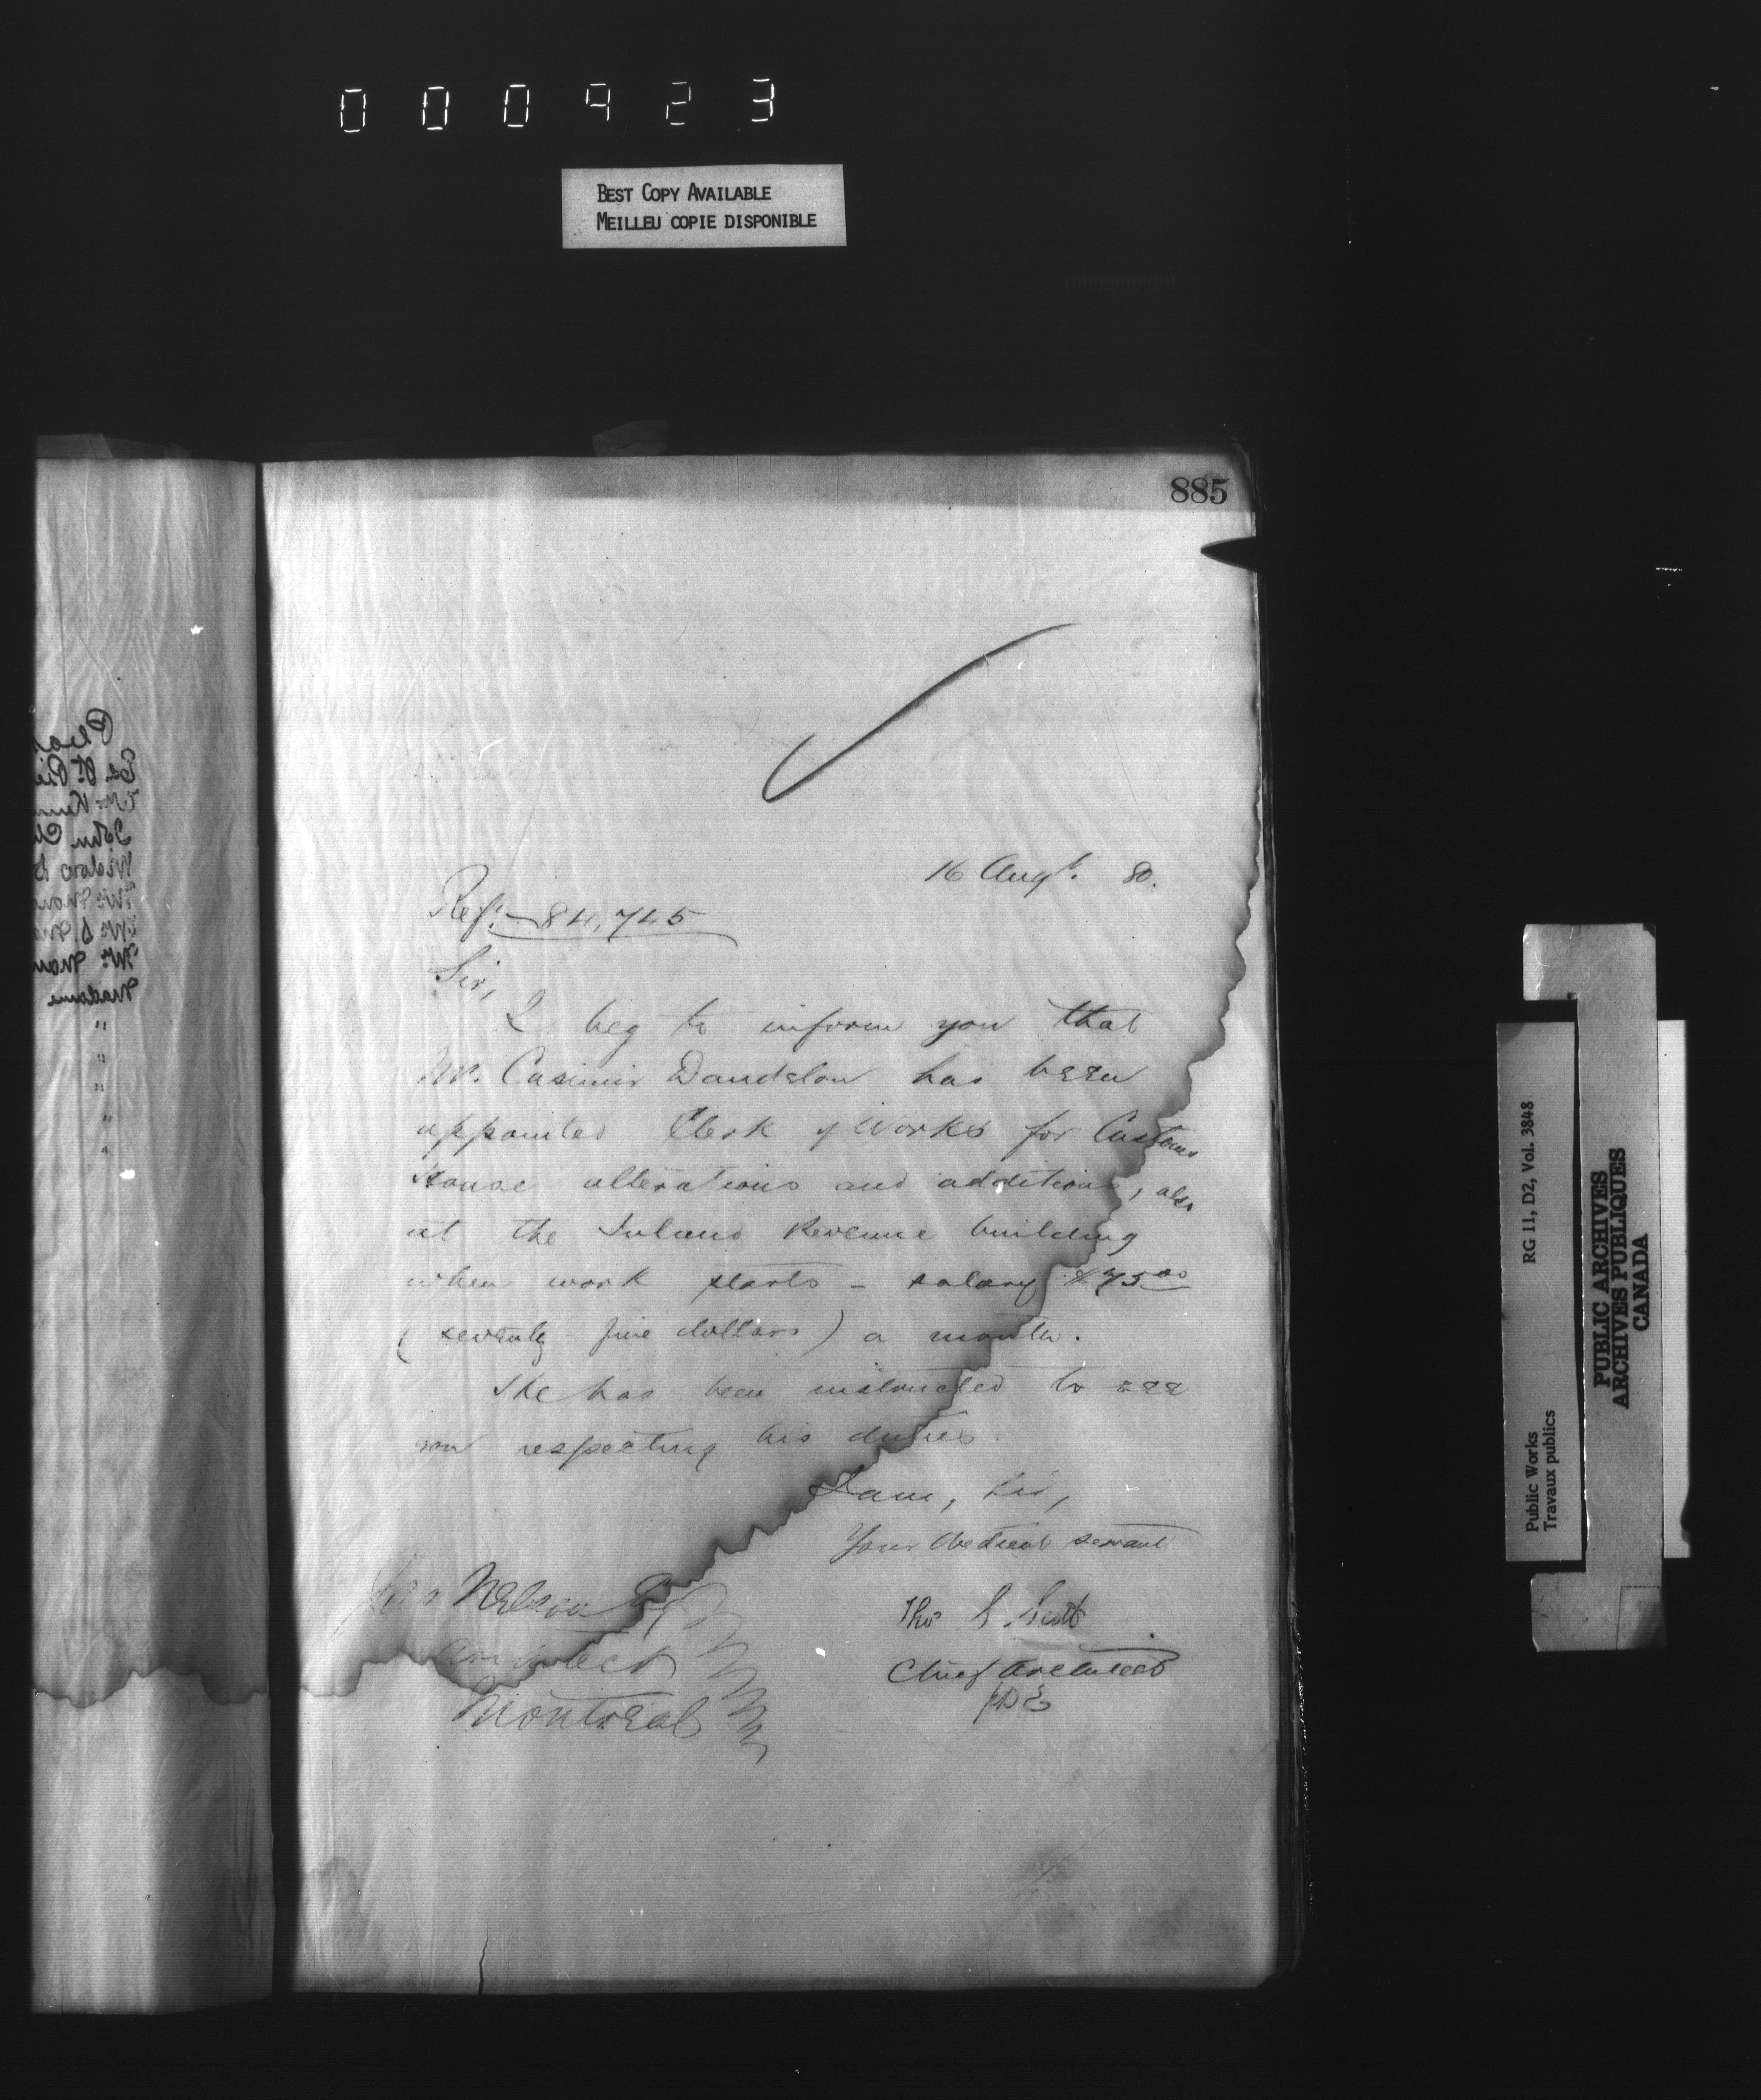 000423
BEST COPY AVAILABLE
MEILLEU COPIE DISPONIBLE
885
16 Augt. 80.
Ref: — 84,745
Sir,
I beg to inform you that
Mr. Casimir has been
appointed Clerk of Works for Customs
House alterations and additions, also
at the Inland Revenue building
when work starts - salary $75.00
(seventy-five dollars) a month.
He has been instructed to see
you respecting his duties.
I am, Sir,
Your Obedient servant
Thos S. Scott
Chief Architect
Jas Nelson Esq
Architect
Montreal
Public Works
Travaux publics
RG 11, D2, Vol. 3848
PUBLIC ARCHIVES
ARCHIVES PUBLIQUES
CANADA